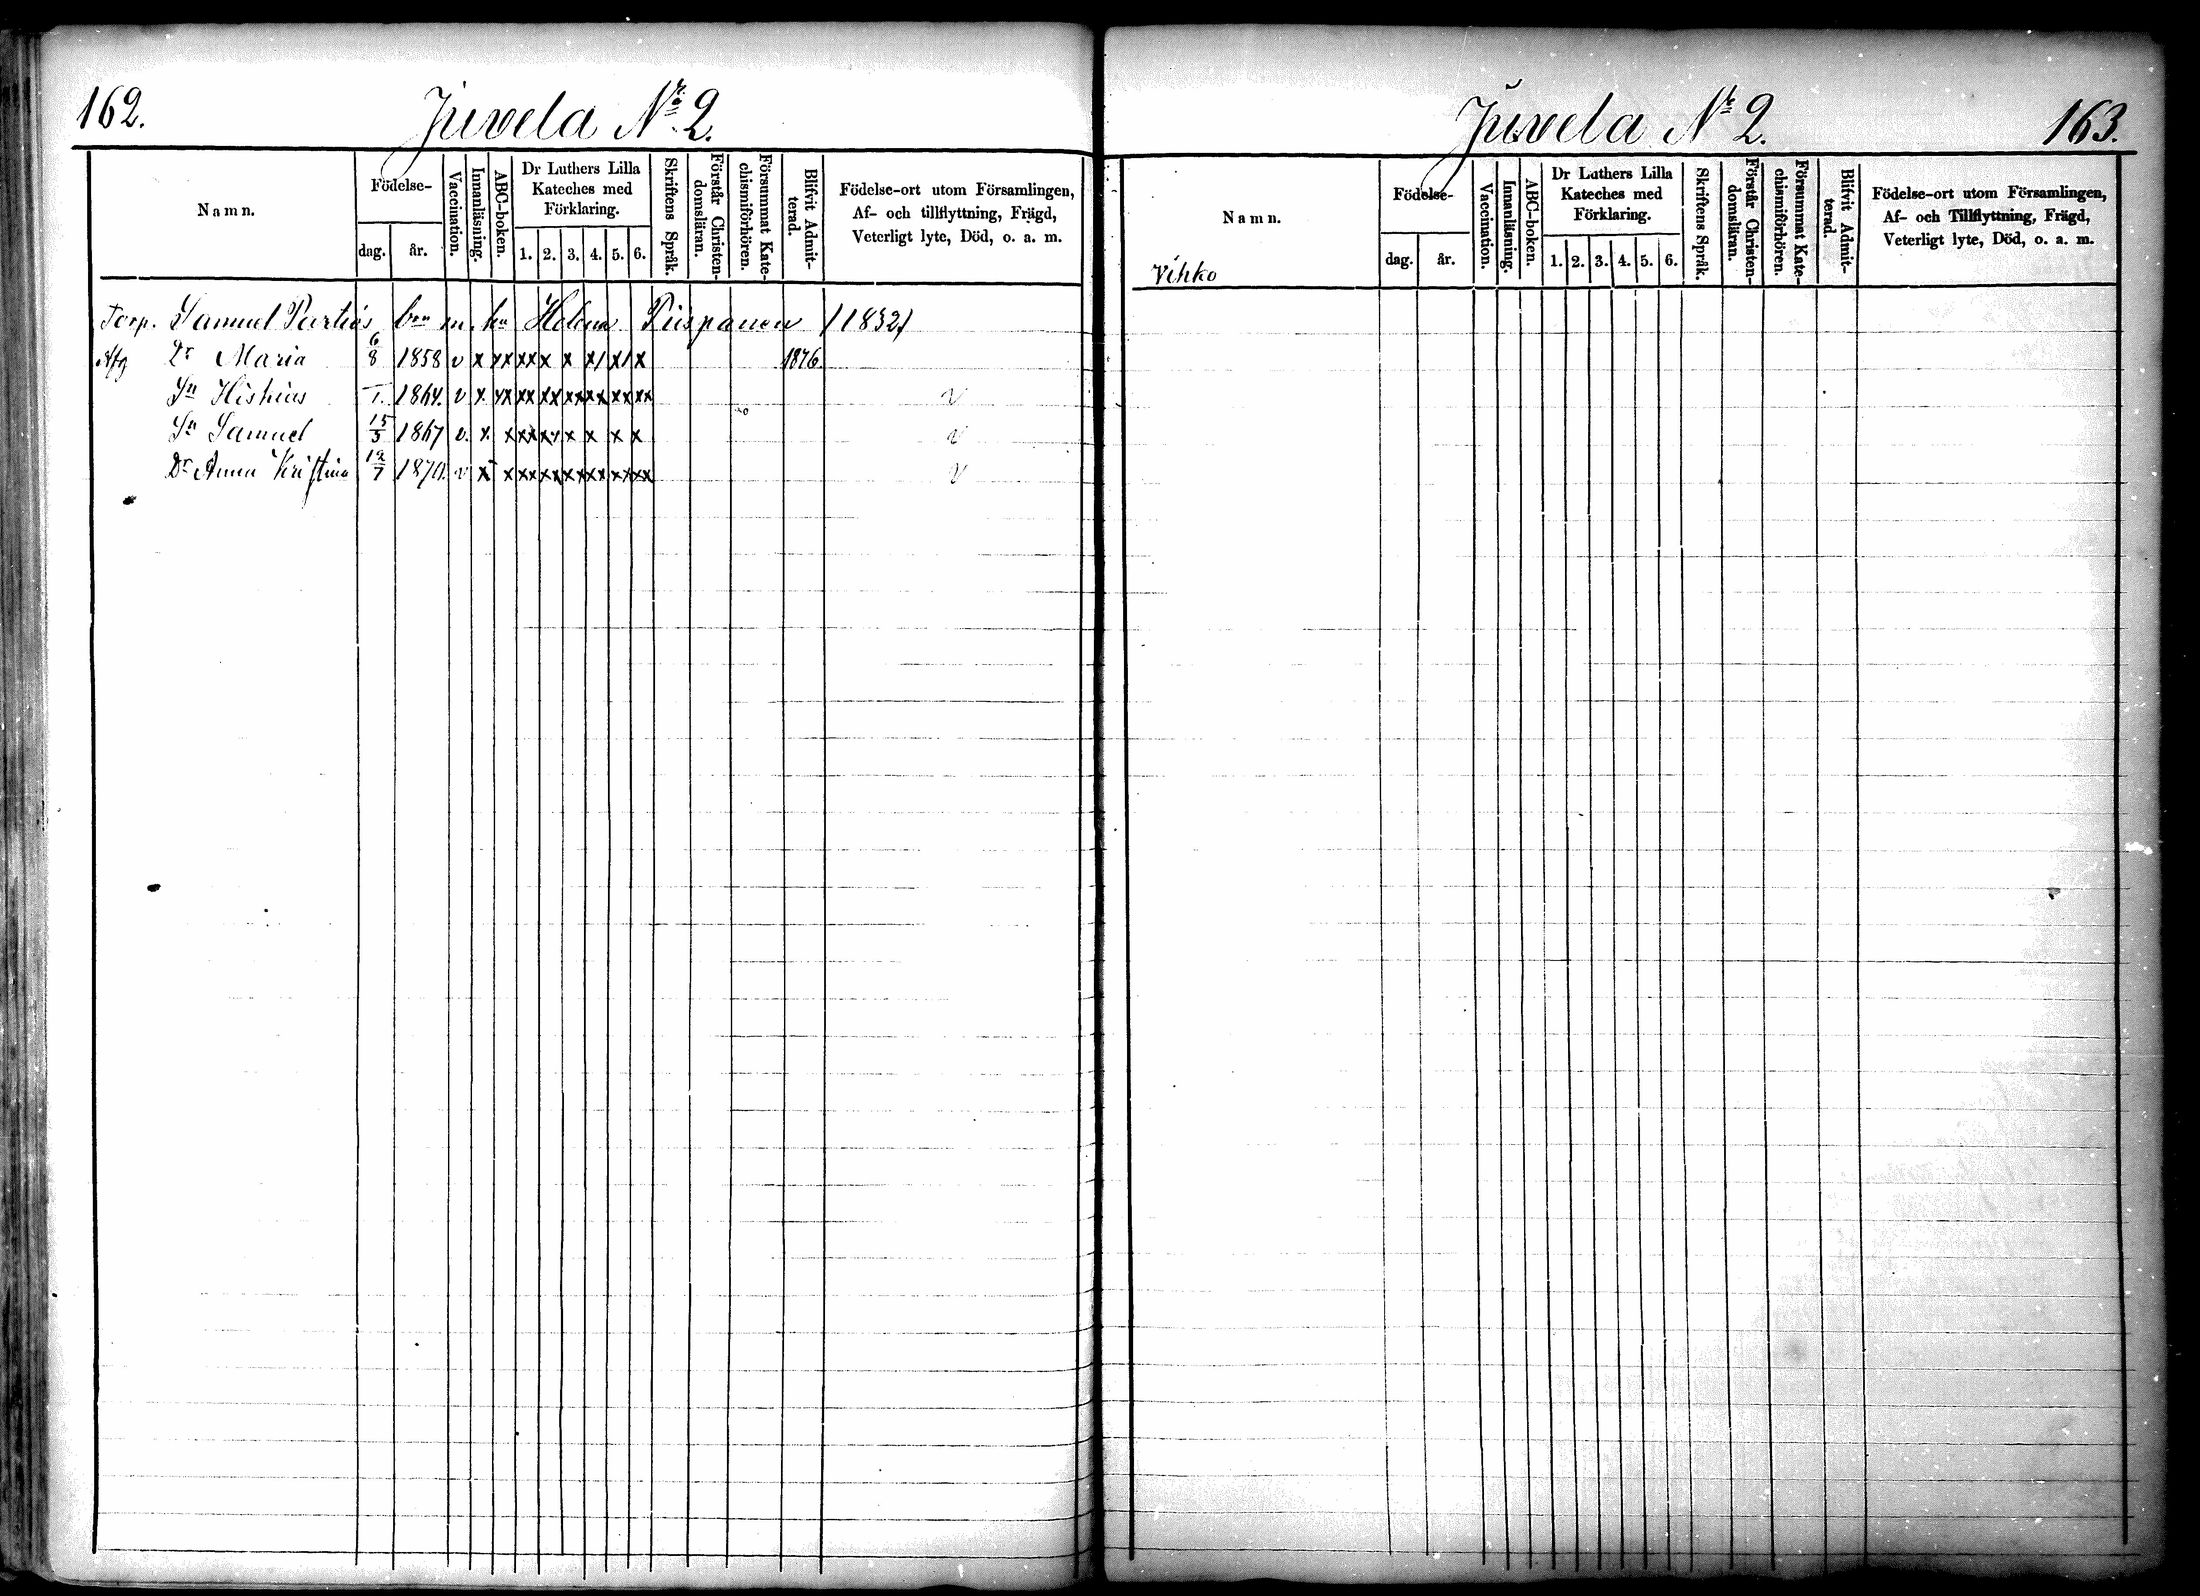 162.
Juvela Nr 2.
Namn.
Födelse-
dag.
år.
Vaccination.
Innanläsning.
ABC-boken.
Dr Luthers Lilla
Kateches med
Förklaring.
1. 2. 3. 4. 5. 6.
Skriftens Språk.
Förstår Christen-
domsläran.
Försummat Kate-
chismiförhören.
Blifvit Admit-
terad.
Födelse-ort utom Församlingen,
Af- och tillflyttning, Frägd,
Veterligt lyte, Död, o. a. m.
Torp. Samuel m. hu Helena Piispanen /1832/
Dr Maria 6/8 1858 v x xx xx x x x/ x/ x 1876.
Sn 1864. v x. xx xx xx xx xx xx xx v
Sn Samuel 15/5 1867 v. x. x xx xx x x x x v
Dr Anna Kristina 12/7 1870. v x x xx xx xx xx xx xx v
Juvela Nr 2.
163.
Namn.
Vihko
Födelse-
dag.
år.
Vaccination.
Innanläsning.
ABC-boken.
Dr Luthers Lilla
Kateches med
Förklaring.
1. 2. 3. 4. 5. 6.
Skriftens Språk.
Förstår Christen-
domsläran.
Försummat Kate-
chismiförhören.
Blifvit Admit-
terad.
Födelse-ort utom Församlingen,
Af- och Tillflyttning, Frägd,
Veterligt lyte, Död, o. a. m.